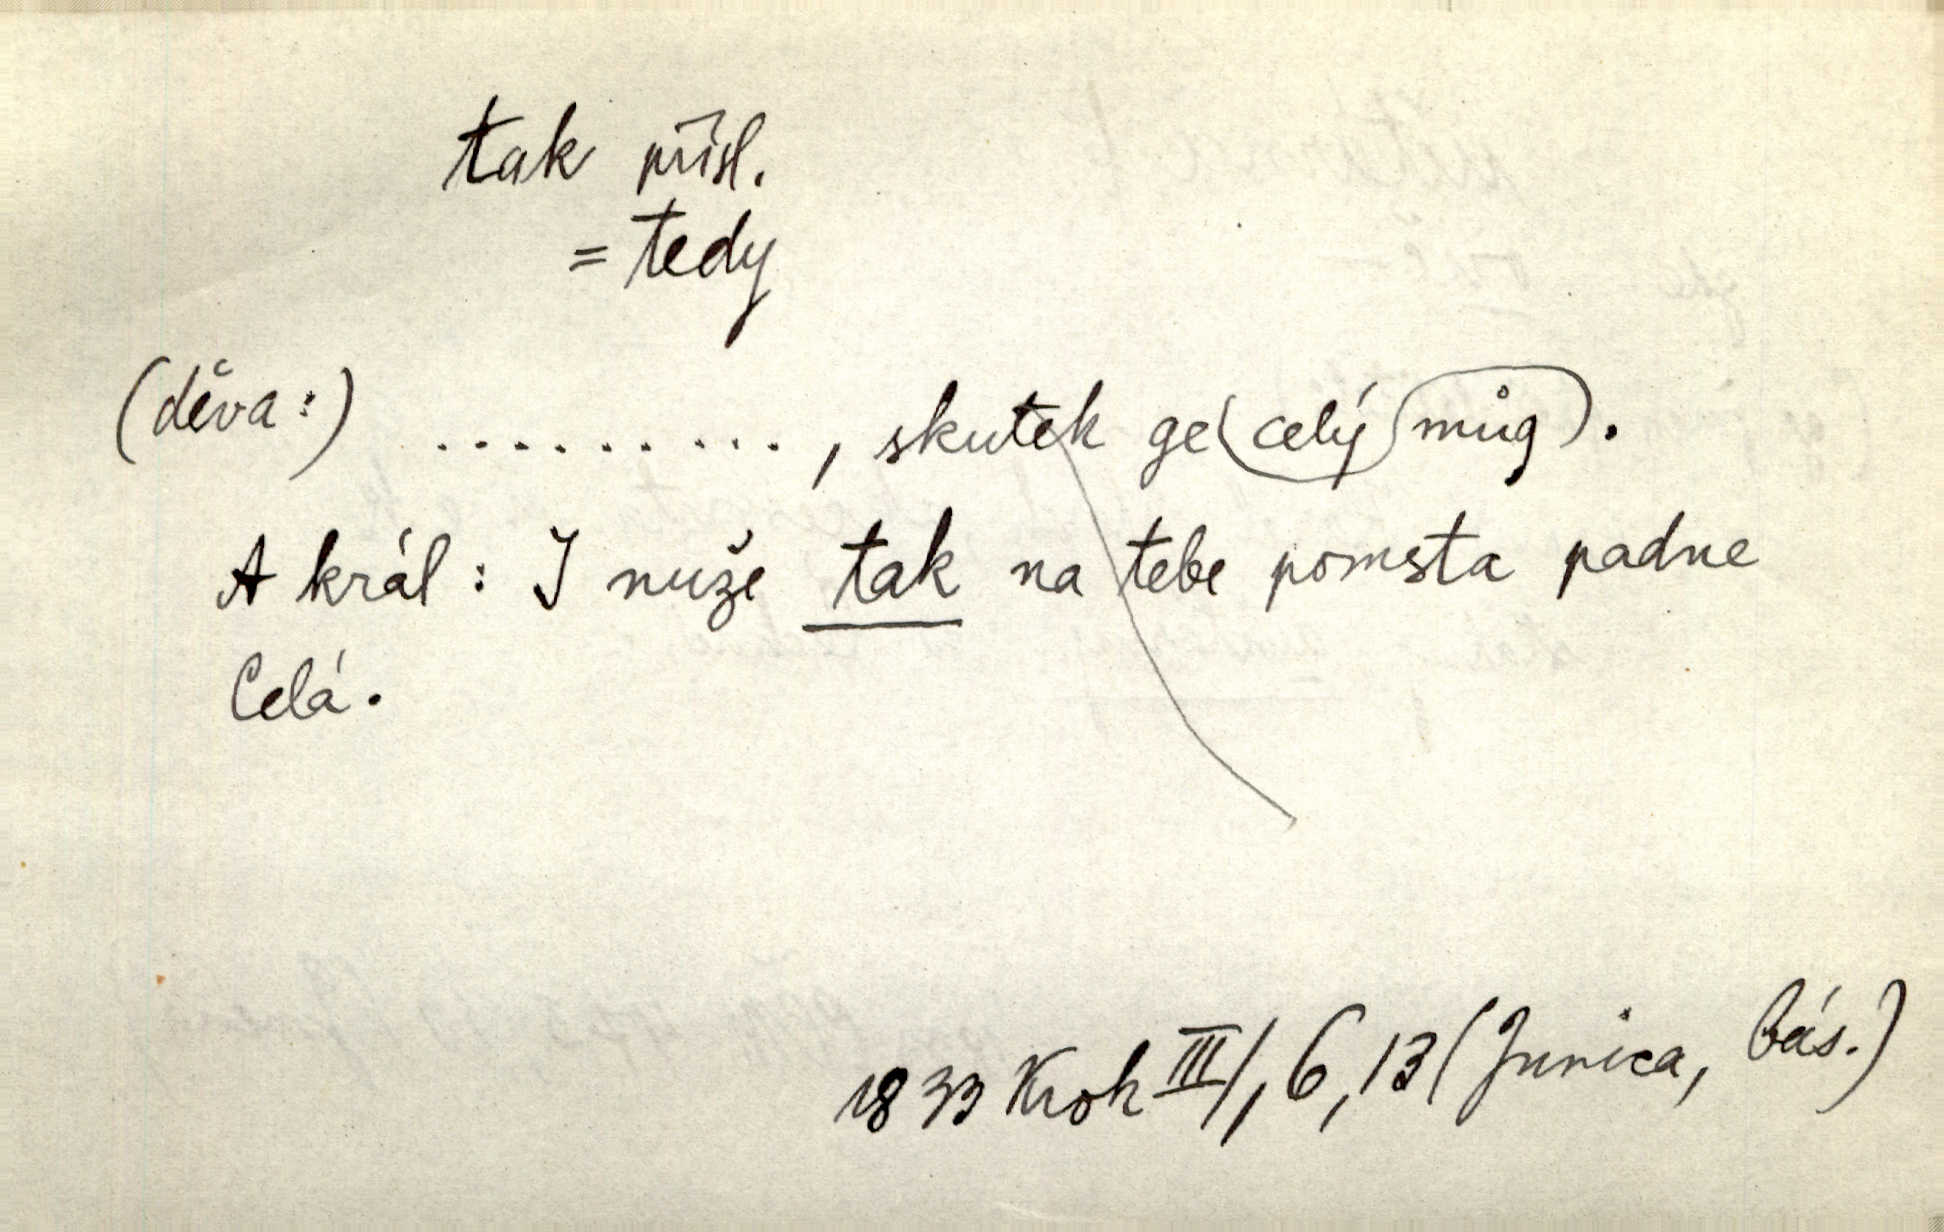 tak přísl.
= tedy
(děva:) .........., skutek ge celý můg.
A král: I nuže tak na tebe pomsta padne
Celá.
1833 Krok III/1, 6, 13 (Junica, bás.)